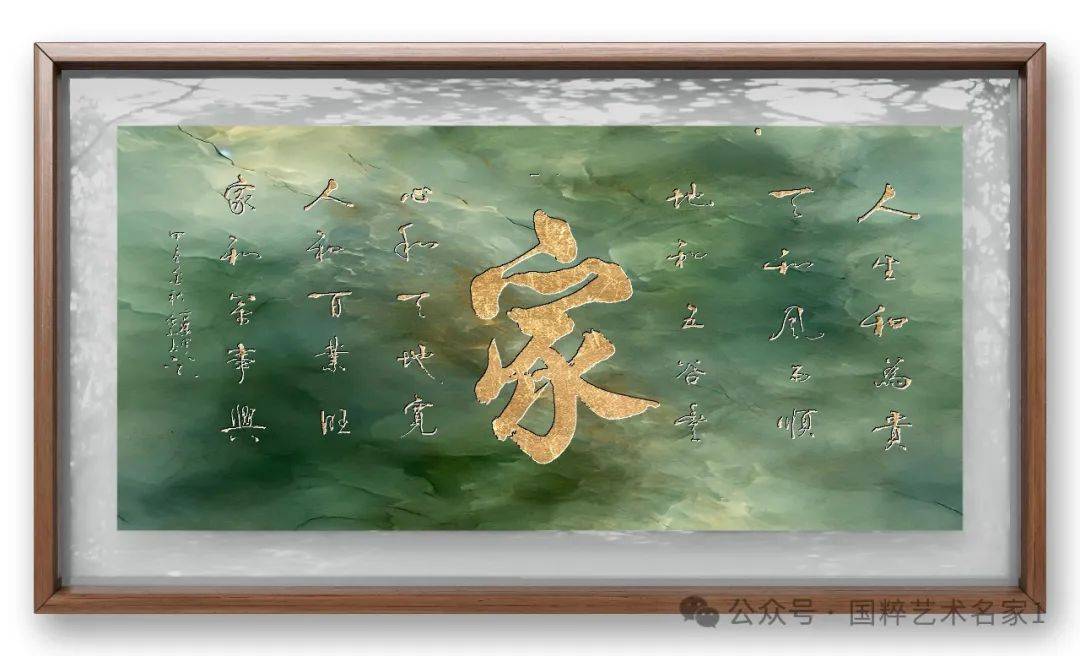 人生和為貴
天和風雨順
地和五谷豐
家
心和天地寬
人和百業旺
家和萬事興
公众号 · 国粹艺术名家1